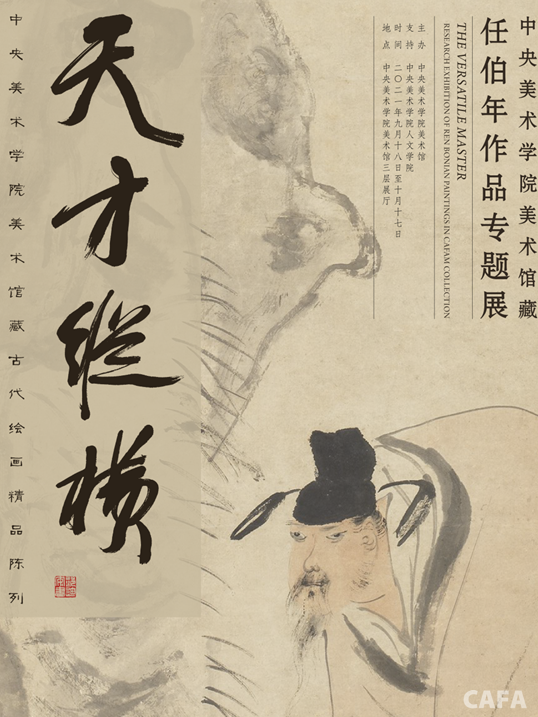 中央美术学院美术馆藏
任伯年作品专题展
THE VERSATILE MASTER
RESEARCH EXHIBITION OF REN BONIAN PAINTINGS IN CAFAM COLLECTION
主办 中央美术学院美术馆
支持 中央美术学院人文学院
时间 二〇二一年九月十八日至十月十七日
地点 中央美术学院美术馆三层展厅
天才纵横
中央美术学院美术馆藏古代绘画精品陈列
CAFA